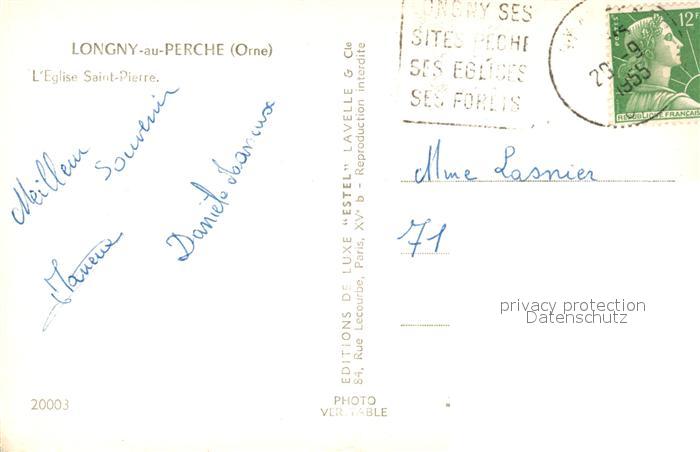 LONGNY-au-PERCHE (Orne)
L'Eglise Saint-Pierre.
Meilleur
Souvenir
20003
EDITIONS DE LUXE "ESTEL" LAVELLE & Cie
84, Rue Lecourbe, Paris, XVe b - Reproduction interdite
PHOTO
VERITABLE
LONGNY SES
SITES PÊCHE
SES EGLISES
SES FORETS
1955
POSTES
12F
REPUBLIQUE FRANÇAISE
Mme Lasnier
71
privacy protection
Datenschutz